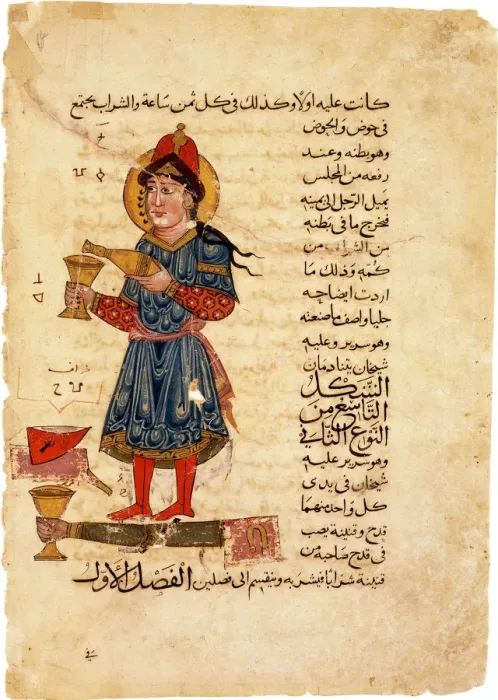 كانت عليه اولًا وكذلك في كل ثمن ساعة والشراب يجتمع
في حوض والحوض
وهو بطنه وعند
رفعه من المجلس
يميل الرجل الى يمينه
فيخرج ما في بطنه
من الشراب من
كمه وذلك ما
اردت ايضاحه
جليا واصف ما صنعته
وهو سرير وعليه
شيخان يتنادمان
الشكل
التاسع من
النوع الثاني
وهو سرير عليه
شيخان في يدى
كل واحد منهما
قدح وقنينة يصب
في قدح صاحبه من
قنينة شرابا فيشربه وينقسم الى فصلين الفصل الاول